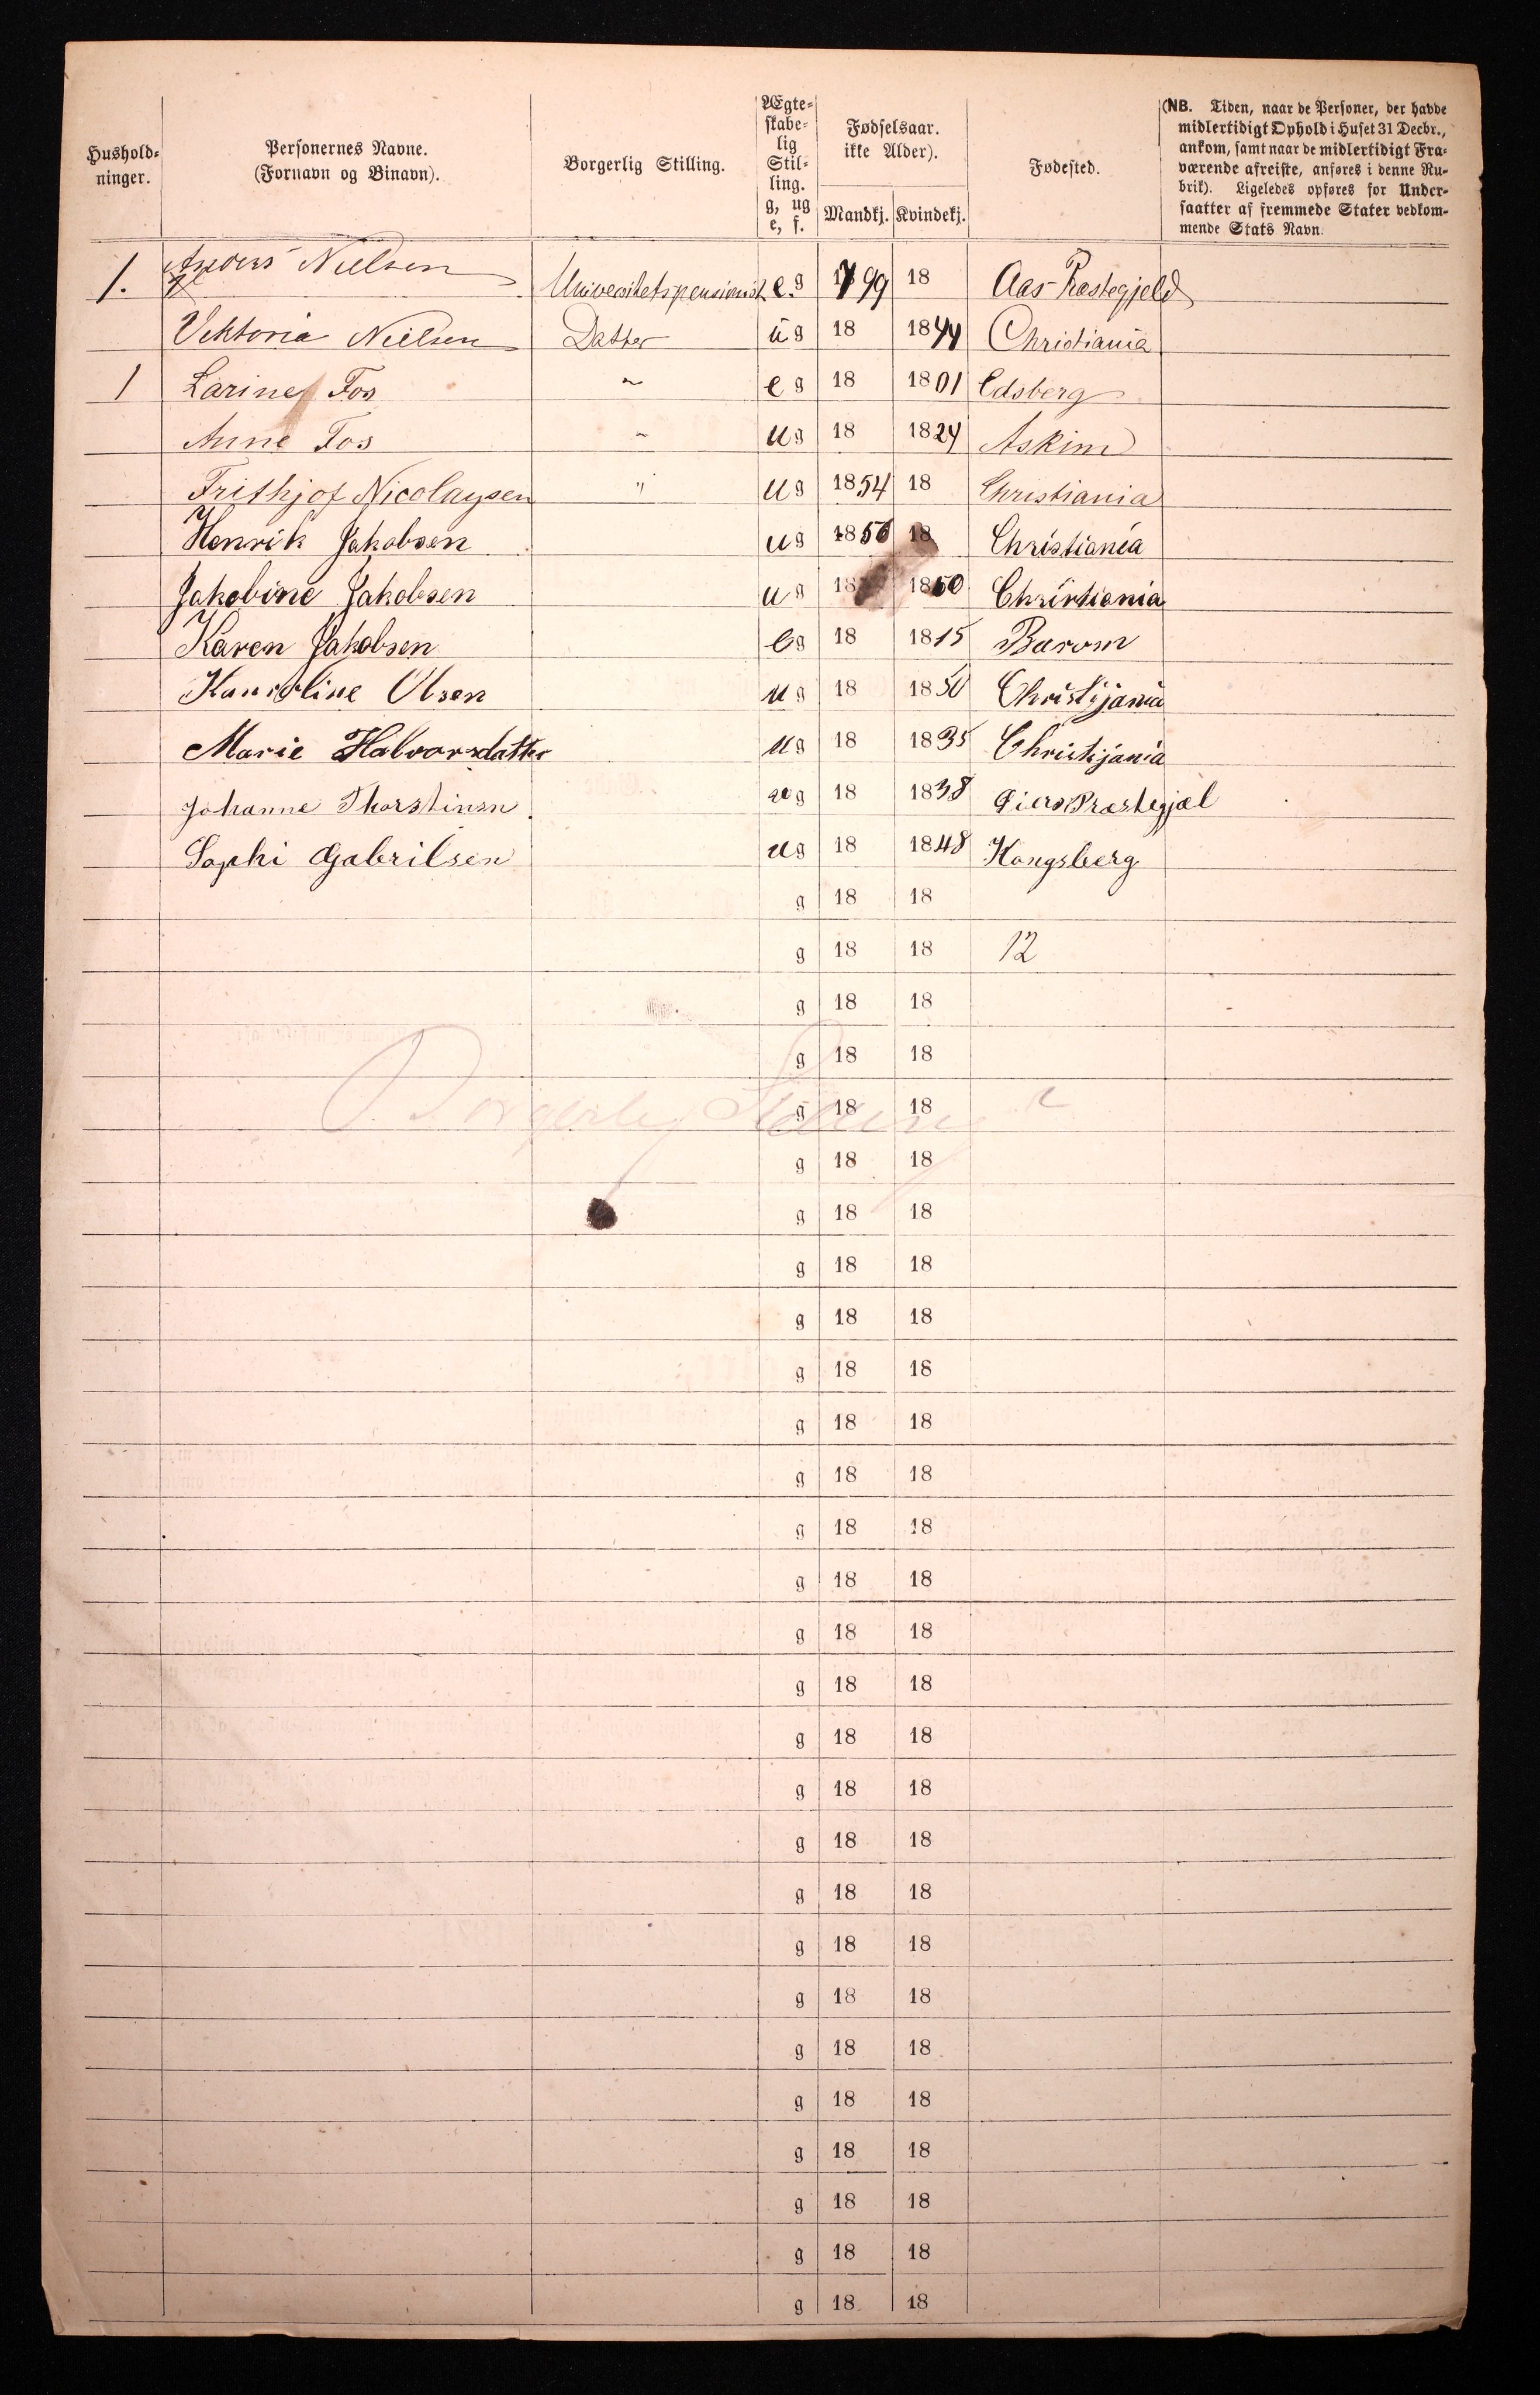 Hushold-
ninger.
Personernes Navne.
(Fornavn og Binavn).
Borgerlig Stilling.
Ægte-
skabe-
lig
Stil-
ling.
g, ug
e, f.
Fødselsaar.
ikke Alder).
Mandkj. Kvindekj.
Fødested.
(NB. Tiden, naar de Personer, der havde
midlertidigt Ophold i Huset 31 Decbr.,
ankom, samt naar de midlertidigt Fra-
værende afreiste, anføres i denne Ru-
brik). Ligeledes opføres for Under-
saatter af fremmede Stater vedkom-
mende Stats Navn.
1. Anders Nielsen Universitetspensionist e. g 1799 18 Aas Præstegjeld
Viktoria Nielsen Datter u g 18 1844 Christiania
1 Larine Fos " e g 18 1801 Edsberg
Anne Fos " u g 18 1824 Askim
Frithjof Nicolaysen " u g 1854 18 Christiania
Henrik Jakobsen u g 1856 18 Christiania
Jakobine Jakobsen u g 18 1860 Christiania
Karen Jakobsen e g 18 1815 Barom
Karoline Olsen u g 18 1850 Christijania
Marie Halvorsdatter u g 18 1835 Christijania
Johanne Thorstinsn u g 18 1838 Præstegjæl
Sophi Gabrilsen u g 18 1848 Kongsberg
g 18 18
g 18 18 12
g 18 18
g 18 18
Borgerlig Stilling
g 18 18
g 18 18
g 18 18
g 18 18
g 18 18
g 18 18
g 18 18
g 18 18
g 18 18
g 18 18
g 18 18
g 18 18
g 18 18
g 18 18
g 18 18
g 18 18
g 18 18
g 18 18
g 18 18
g 18 18
g 18 18
g 18 18
g 18 18
g 18 18